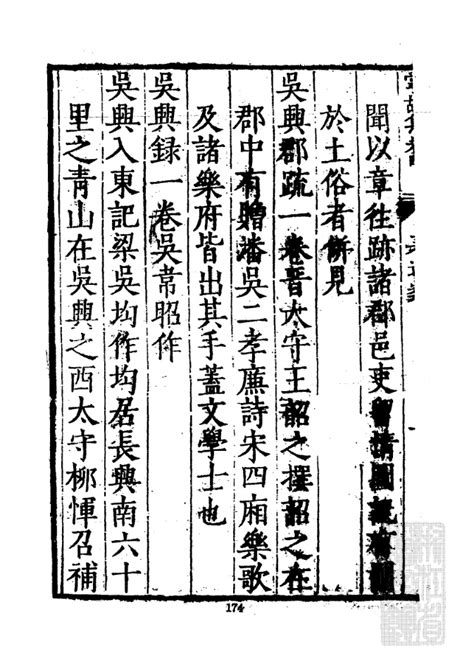 聞以章往跡諸郡邑吏
於土俗者併見
吳興郡疏一卷晉太守王韶之撰韶之在
郡中有贈潘吳二孝廉詩宋四廂樂歌
及諸樂府皆出其手蓋文學士也
吳興録一卷吳常昭作
吳興入東記梁吳均作均居長興南六十
里之青山在吳興之西太守柳惲召補
174